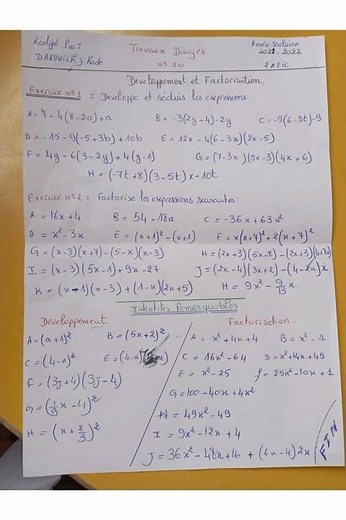 Rédigé Par: Travaux Dirigés Année Scolaire
DAROVICH, J. Rode n° 10 2021-2022
Developpement et Factorisation.
Exercice n°1 : Developpe et réduis les expressions
A = 7 - 4(8-2a)+a B = -3(2y-4)-2y C = -5(6-9t)-9
D = -15-9(-5+3b)+10b E = 12x-4(6-3x)(2x-5)
F = 4y-6(3-2y)+4(y-1) G = (7-3x)(9x-3)(4x+6)
H = (-7t+8)(3-5t)x-10t
Exercice n°2 : Factorise les expressions suivantes:
A = 16x+4 B = 54-18a C = -36x+63x²
D = x²-3x E = (x+1)²-(x+1) F = x(x+7)²+2(x+7)²
G = (x-3)(x+7)-(5-x)(x-3) H = (2x+3)(5x-8)-(2x+3)
I = (x-3)(5x-1)+9x-27 J = (2x-4)(3x+2)-(4-2x)x
K = (x-1)(x-3)+(1-x)(2x+5) H = 9x²-9/13 x
Identités Remarquables
Developpement Factorisation.
A = (a+1)² B = (5x+2)² A = x²+4x+4 B = x²-1
C = (4-x)² E = (4-x) C = 16x²-64 D = x²+14x+49
F = (3y+4)(3y-4) E = x²-25 f = 25x²-10x+1
G = (1/9 x-4)² G = 100-40x+4x²
H = (x+2/3)² H = 49x²-49
I = 9x²-12x+4
J = 36x²-48x+16 + (6x-4)2x
FIN